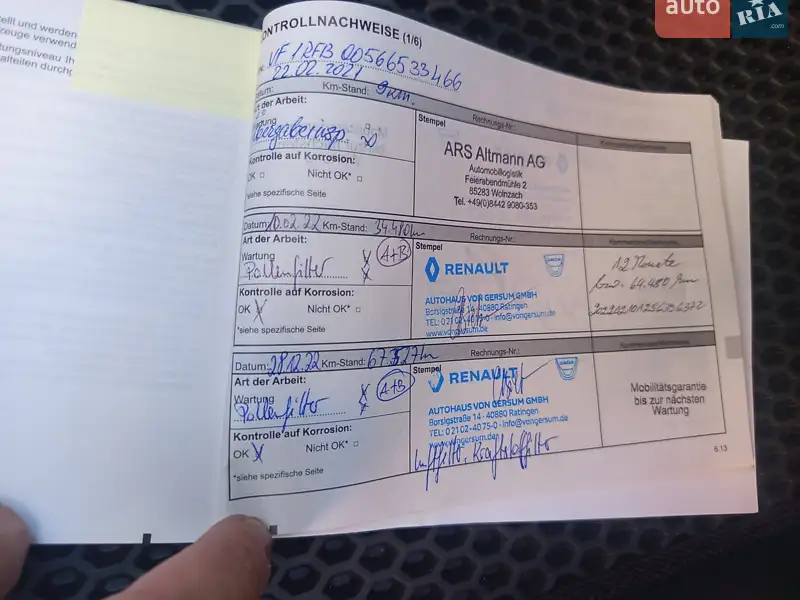 auto
RIA
.com
KONTROLLNACHWEISE (1/6)
VF1RFB00566533466
22.02.2021
Datum: Km-Stand: 9 km.
Art der Arbeit:
Wartung
Übergabeinsp.
Kontrolle auf Korrosion:
OK □ Nicht OK* □
*siehe spezifische Seite
Stempel
Rechnungs-Nr.:
ARS Altmann AG
Automobillogistik
Feierabendmühle 2
85283 Wolnzach
Tel. +49(0)8442 9080-353
Datum: 10.02.22 Km-Stand: 34.480 km
Art der Arbeit:
Wartung
Pollenfilter
A+B
Kontrolle auf Korrosion:
OK Nicht OK* □
*siehe spezifische Seite
Stempel
Rechnungs-Nr.:
RENAULT
DACIA
AUTOHAUS VON GERSUM GMBH
Borsigstraße 14 · 40880 Ratingen
TEL: 0 21 02 - 40 75-0 · info@vongersum.de
www.vongersum.de
12 Monate
bzw. 64.480 km
Datum: 28.12.22 Km-Stand:
Art der Arbeit:
Wartung
Pollenfilter
A+B
Kontrolle auf Korrosion:
OK Nicht OK* □
*siehe spezifische Seite
Stempel
Rechnungs-Nr.:
RENAULT
DACIA
AUTOHAUS VON GERSUM GMBH
Borsigstraße 14 · 40880 Ratingen
TEL: 0 21 02 - 40 75-0 · info@vongersum.de
www.vongersum.de
Luftfilter, Kraftstoffilter
Mobilitätsgarantie
bis zur nächsten
Wartung
6.13